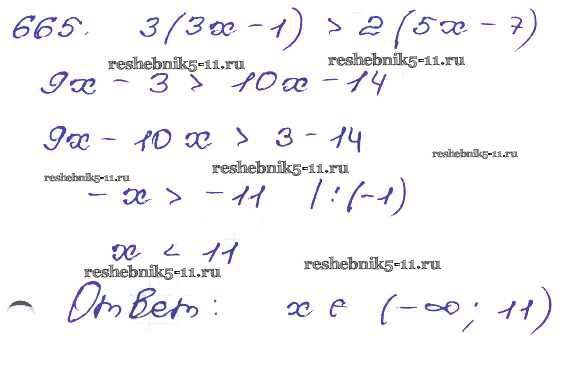 665. 3(3x - 1) > 2(5x - 7)
reshebnik5-11.ru reshebnik5-11.ru
9x - 3 > 10x - 14
9x - 10x > 3 - 14
reshebnik5-11.ru
reshebnik5-11.ru reshebnik5-11.ru
- x > - 11 | : (-1)
x < 11
reshebnik5-11.ru reshebnik5-11.ru
Ответ: x ∈ (-∞; 11)